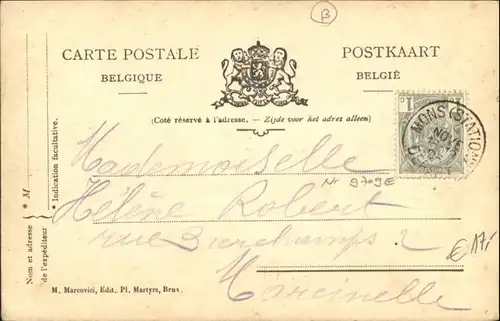 B
CARTE POSTALE
BELGIQUE
POSTKAART
BELGIË
(Coté réservé à l'adresse. – Zijde voor het adres alleen)
1 c
MONS (STATION)
NOV
Mademoiselle
Nr 9709E
Hélène Robert
rue 2
Marcinelle
€ 17,-
* M
* Indication facultative.
Nom et adresse
de l'expéditeur
M. Marcovici, Edit, Pl, Martyrs, Brux.